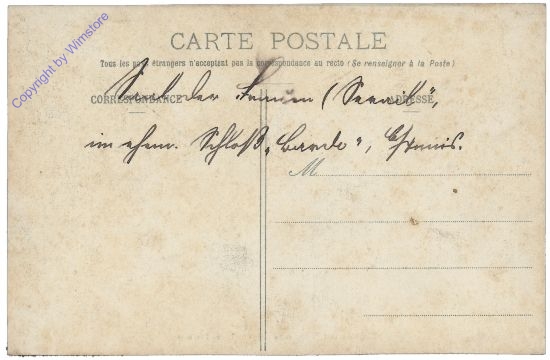 CARTE POSTALE
Tous les pays étrangers n'acceptent pas la correspondance au recto (Se renseigner à la Poste)
CORRESPONDANCE
ADRESSE
Saal der Frauen („Serail“,
im ehem. Schloß „Bardo“, Tunis.
M
Copyright by Wimstore